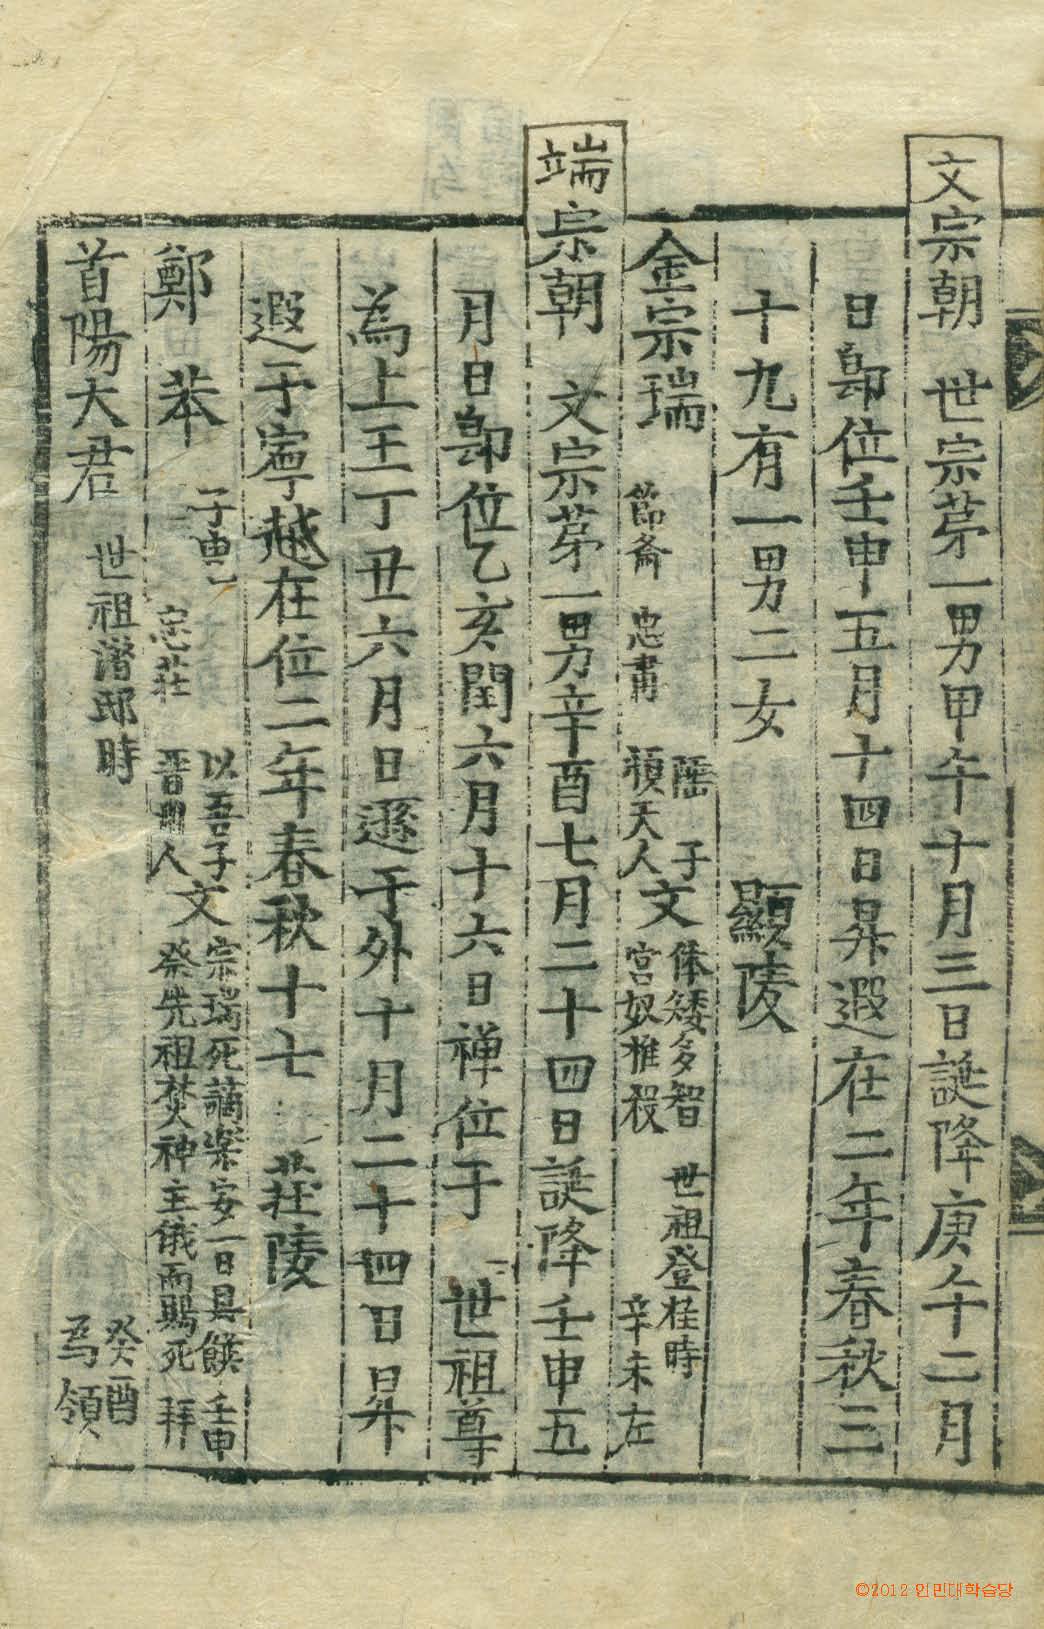 文宗朝 世宗苐一男甲午十月三日誕降庚午二月
日卽位壬申五月十四日昇遐在位二年春秋三
十九有一男二女 顯陵
金宗瑞 節齋 忠肅 蔭 子 順天人 文 体矮多智 宮奴椎殺 世祖登極時 辛未左
端宗朝 文宗苐一男辛酉七月二十四日誕降壬申五
月日卽位乙亥閏六月十六日禅位于 世祖尊
為上王丁丑六月日遜于外十月二十四日昇
遐于寧越在位二年春秋十七 莊陵
鄭苯 子 忠莊 以吾子 晋州人 文 宗瑞死謫樂安一日具饌 祭先祖焚神主俄而賜死 壬申 拜
首陽大君 世祖潜邸時 癸酉 為領
©2012 인민대학습당